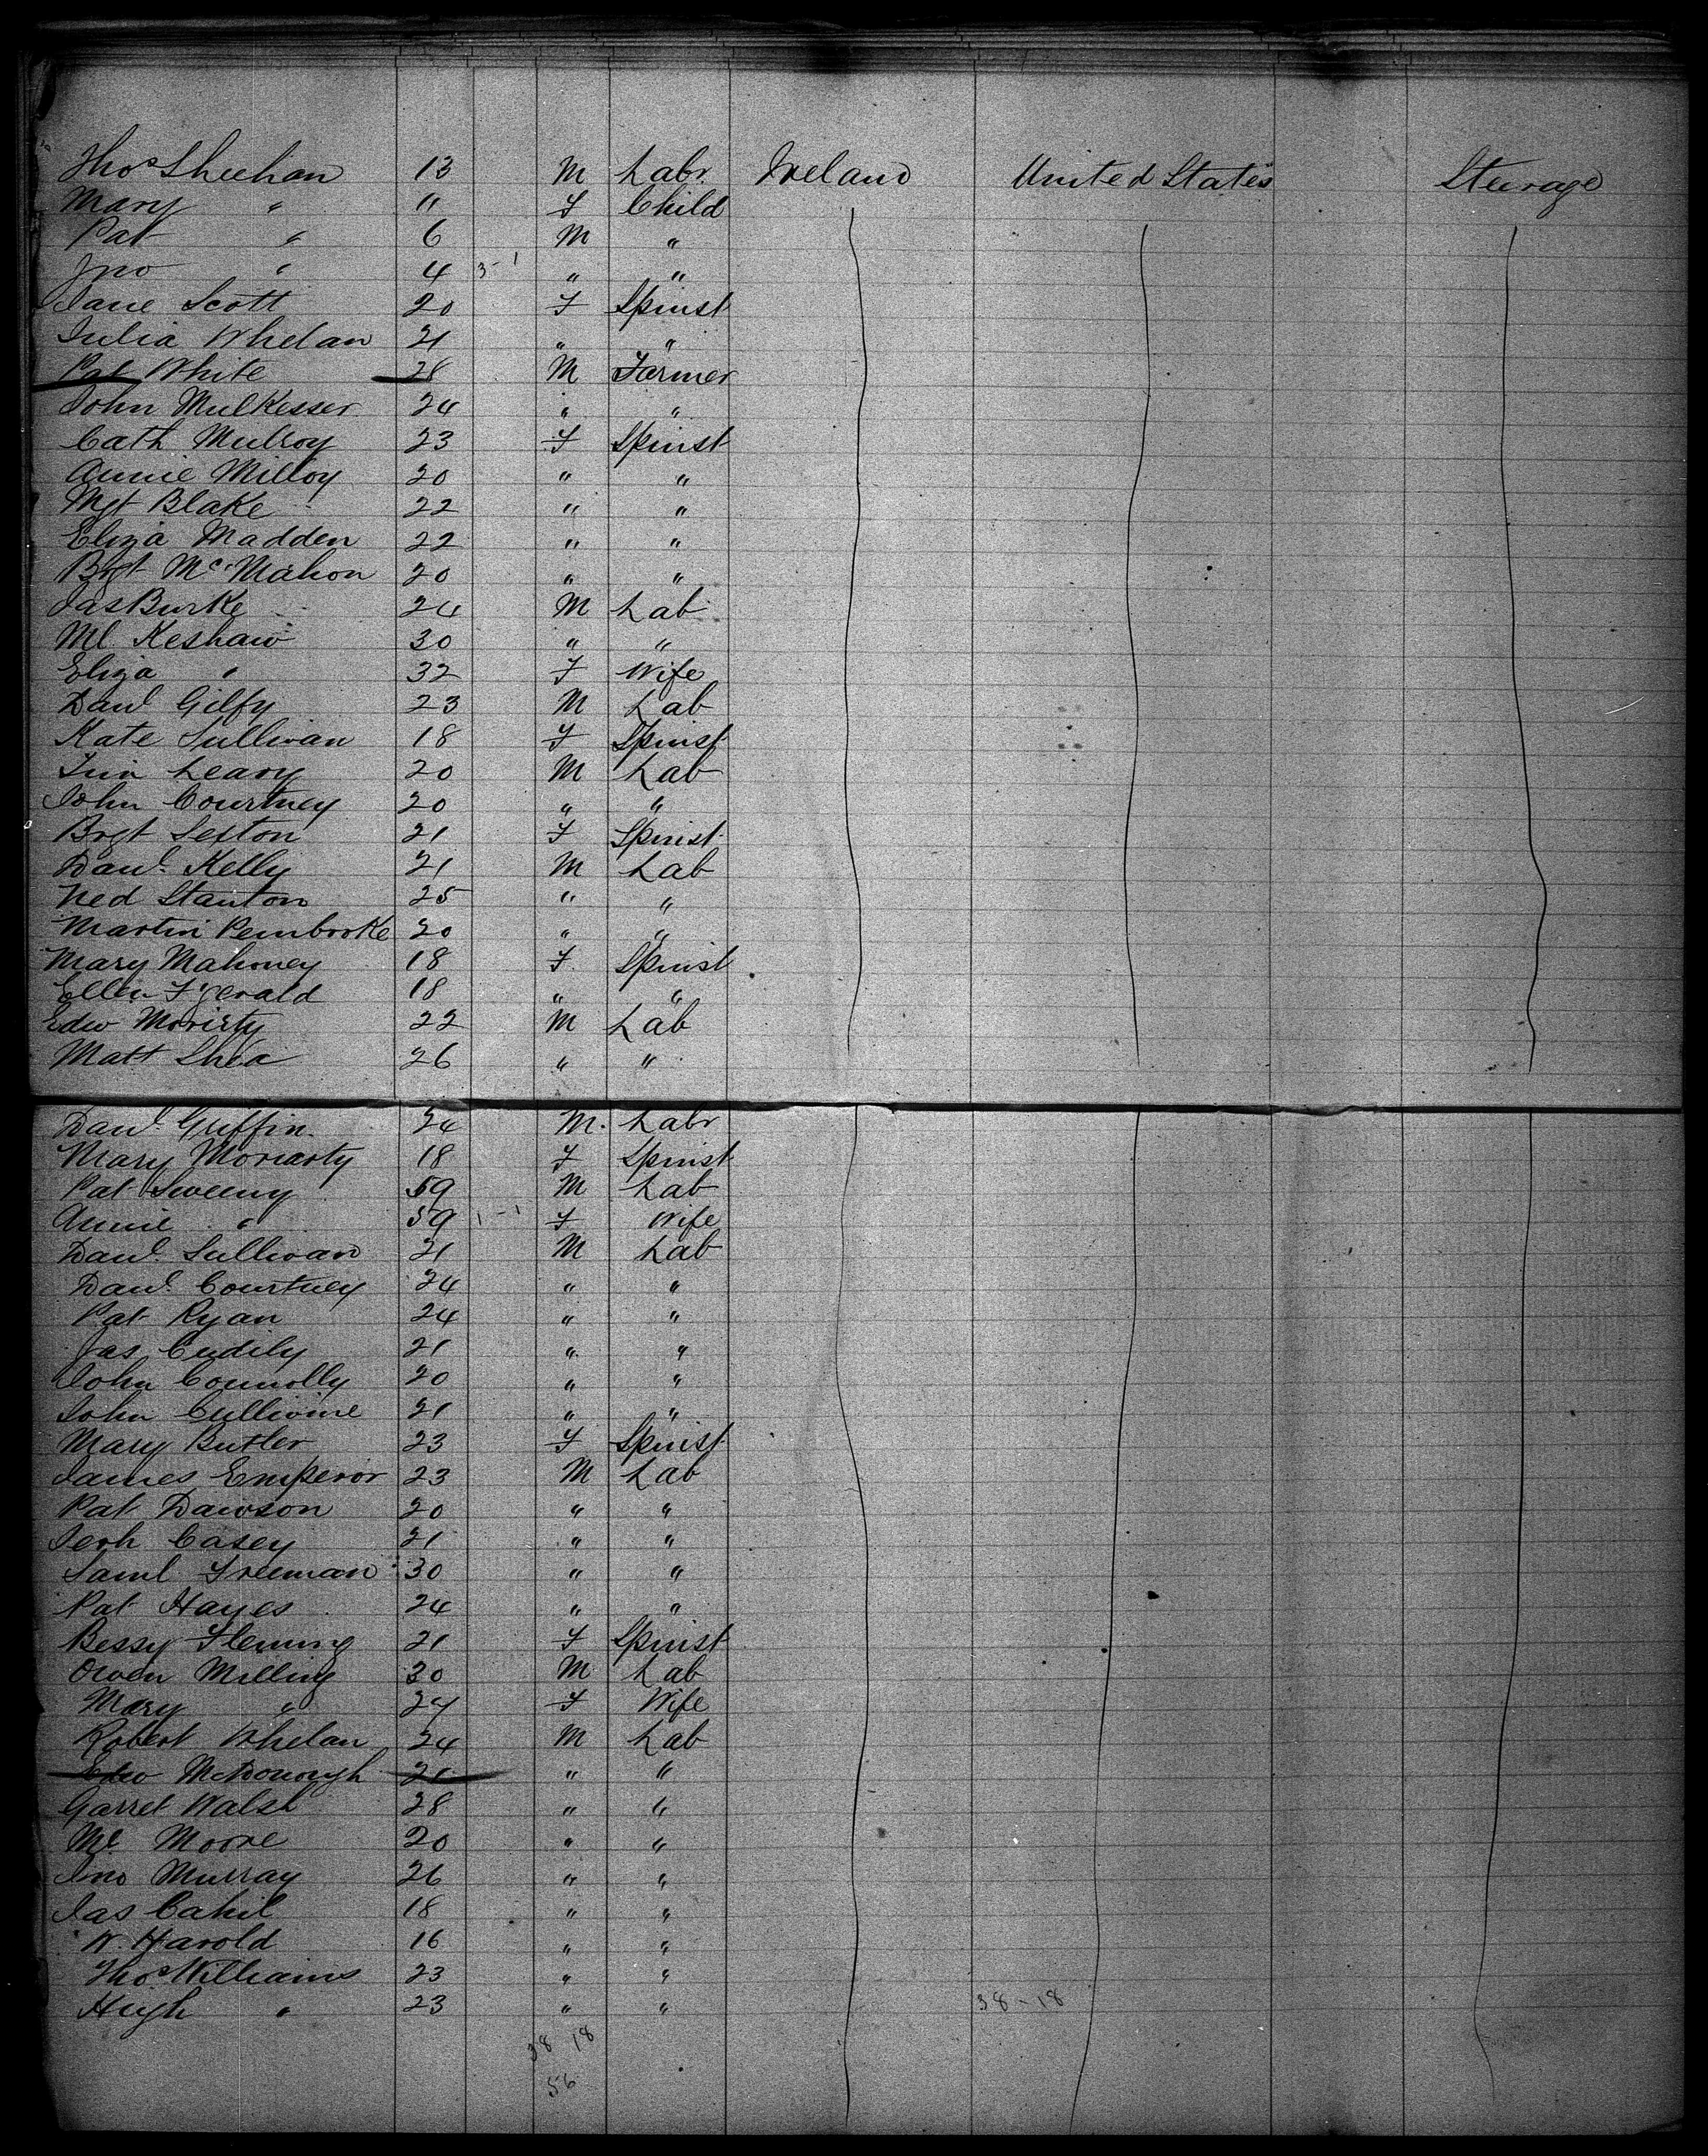 Thos Sheehan 13 M Labr Ireland United States Steerage
Mary " 11 F Child
Pat " 6 M "
Jno " 4 3-1 " "
Jane Scott 20 F Spinst
Julia Whelan 21 " "
Pat White 28 M Farmer
John Mulkisser 24 " "
Cath Mulroy 23 F Spinst
Annie Milloy 20 " "
Mgt Blake 22 " "
Eliza Madden 22 " "
Bgt McMahon 20 " "
Jas Burke 24 M Lab
Ml Keshaw 30 " "
Eliza " 32 F Wife
Danl Gilfy 23 M Lab
Kate Sullivan 18 F Spinst
Tim Leary 20 M Lab
John Courtney 20 " "
Brgt Sexton 21 F Spinst
Danl Kelly 21 M Lab
Ned Stanton 25 " "
Martin Pembroke 20 " "
Mary Mahoney 18 F Spinst
Ellen F'gerald 18 " "
Edw Moristy 22 M Lab
Matt Shea 26 " "
Danl Guffin 24 M. Labr
Mary Moriarty 18 F Spinst
Pat Sweeny 59 M Lab
Annie " 59 1-1 F Wife
Danl Sullivan 21 M Lab
Danl Courtney 24 " "
Pat Ryan 24 " "
Jas Cudily 21 " "
John Connolly 20 " "
John Cullivine 21 " "
Mary Butler 23 F Spinst
James Emperor 23 M Lab
Pat Dawson 20 " "
Jerh Casey 21 " "
Saml Freeman 30 " "
Pat Hayes 24 " "
Bessy Fleming 21 F Spinst
Owen Milling 30 M Lab
Mary " 24 F Wife
Robert Whelan 24 M Lab
Edw McDonough 21 " "
Garret Walsh 28 " "
Ml Moore 20 " "
Jno Murray 26 " "
Jas Cahil 18 " "
W. Harold 16 " "
Thos Williams 23 " "
Hugh " 23 " " 38-18
38 18
56